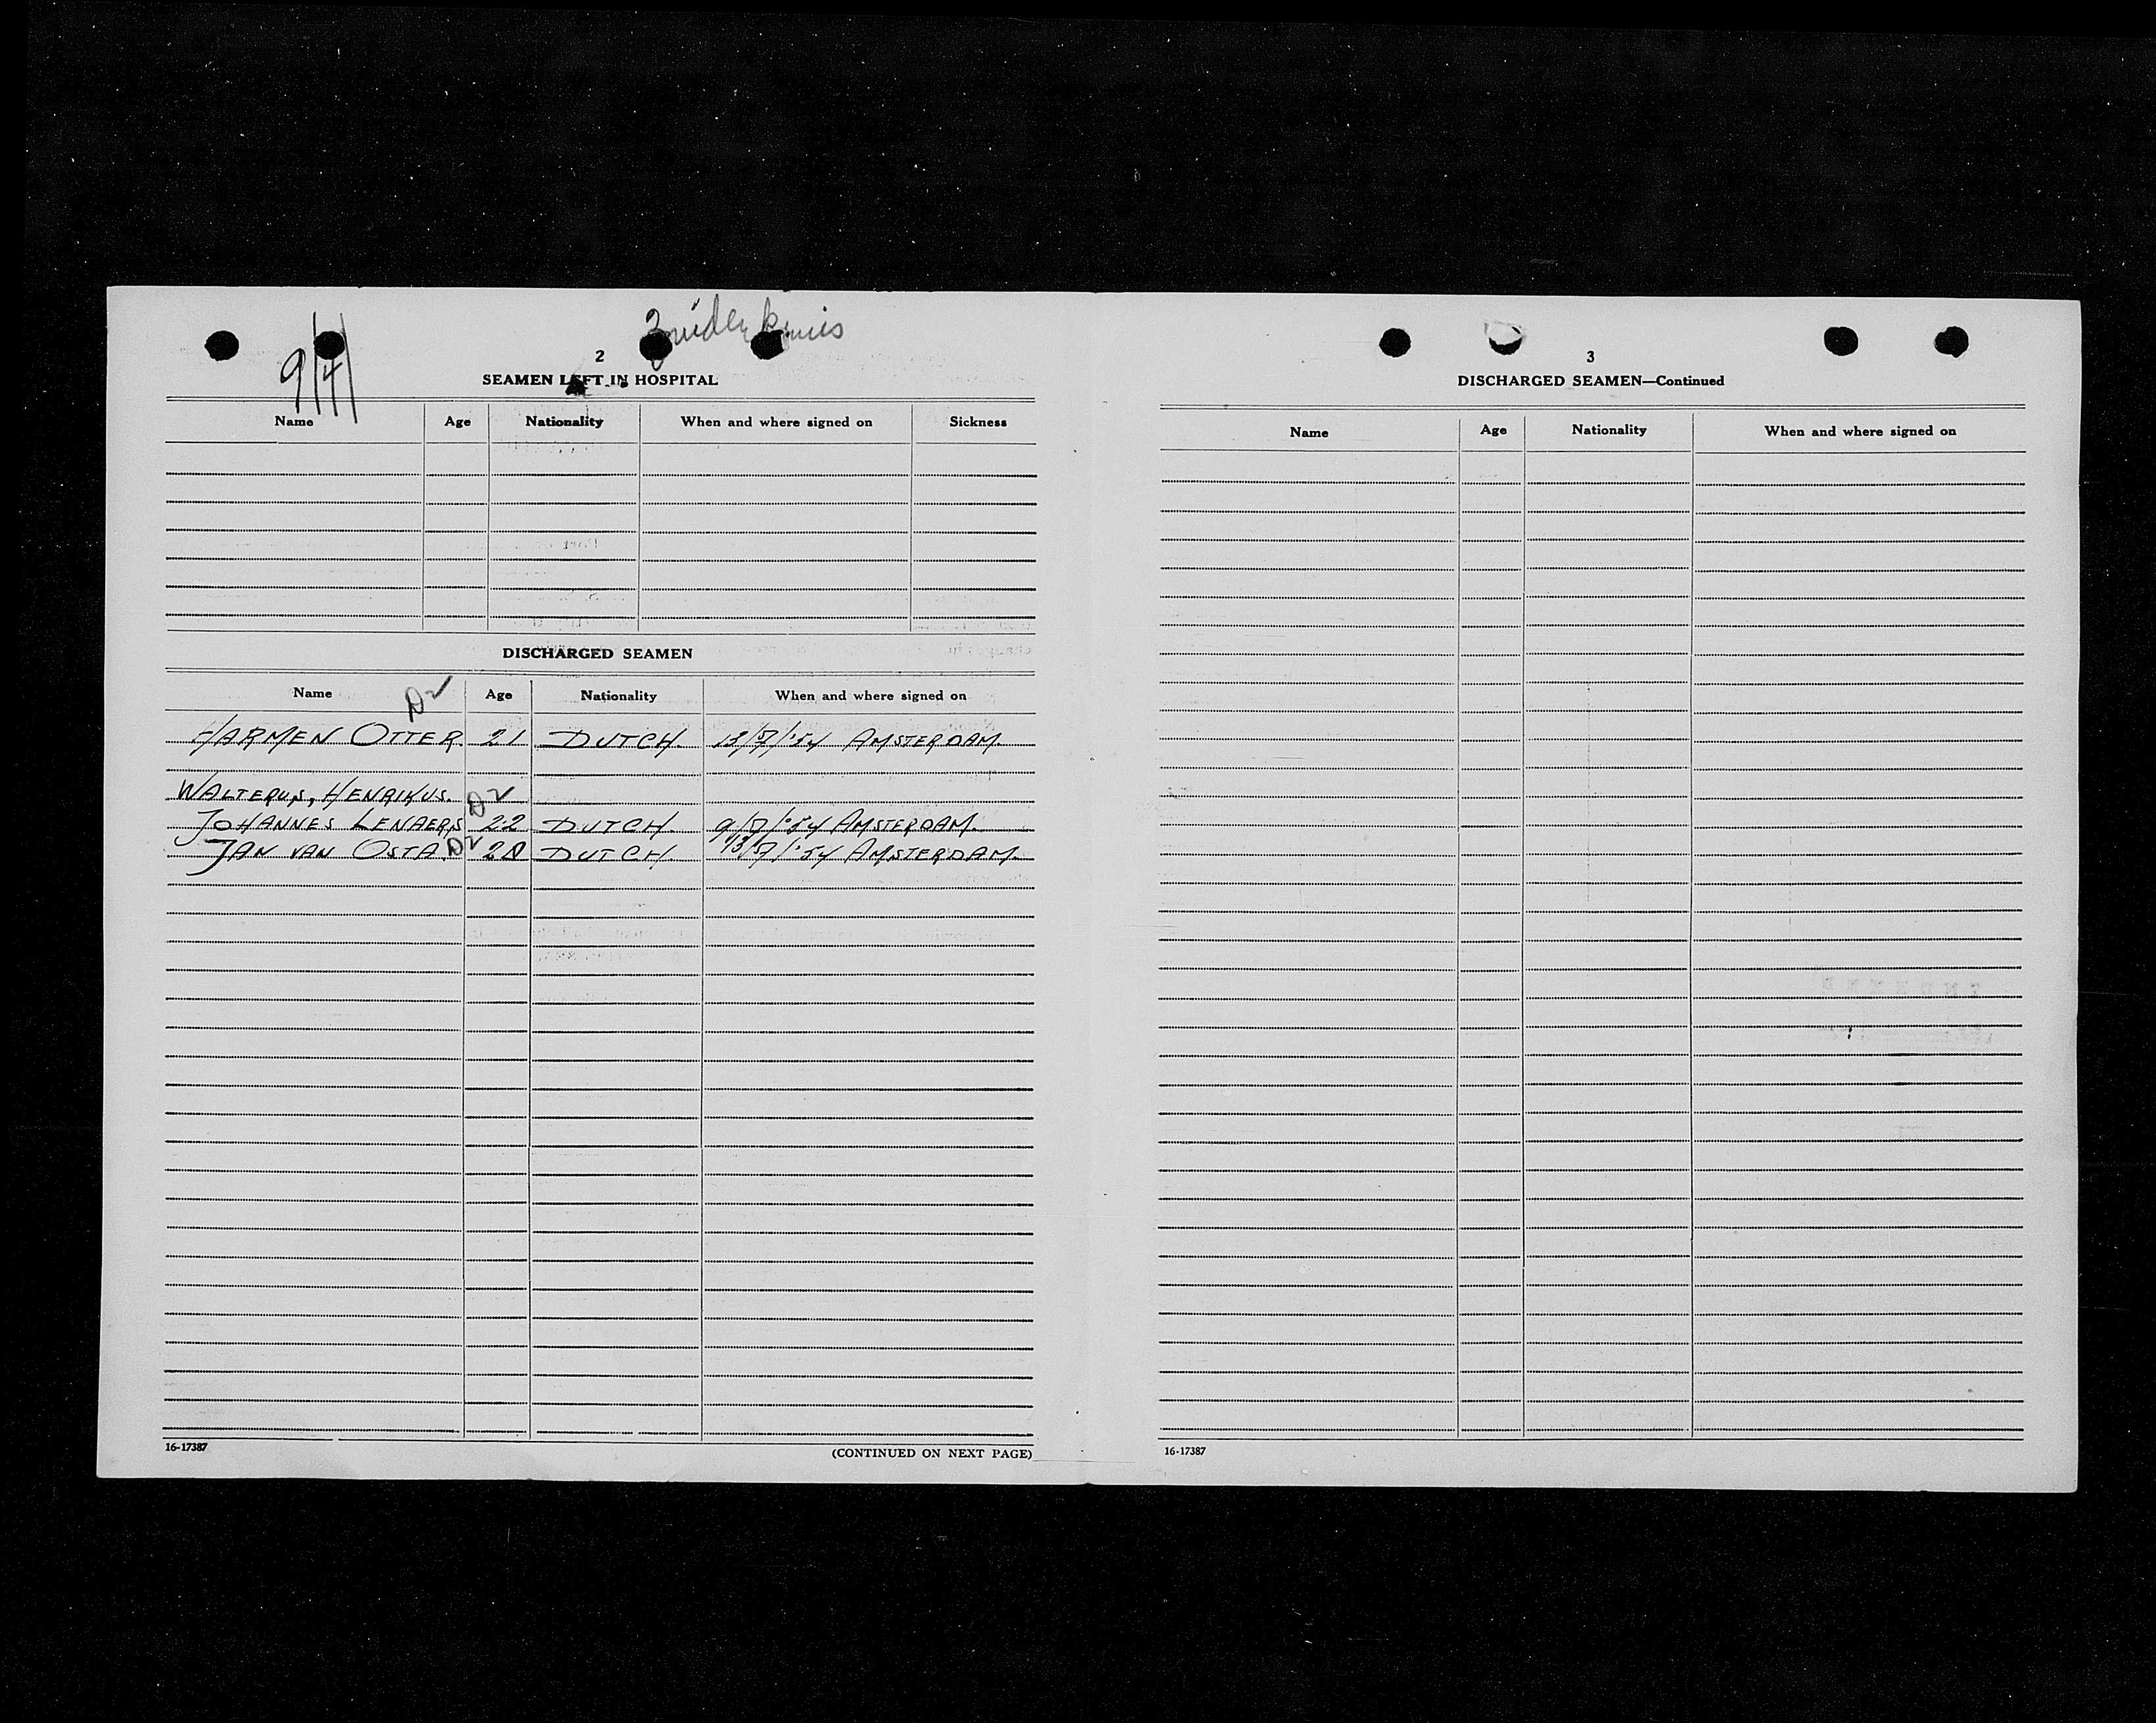 Zuiderkruis
9/4/
2
SEAMEN LEFT IN HOSPITAL
Name Age Nationality When and where signed on Sickness
DISCHARGED SEAMEN
Name Age Nationality When and where signed on
D2
HARMEN OTTER. 21 DUTCH. AMSTERDAM.
WALTERUS, HENRIKUS.
D2
JOHANNES LENAERS 22 DUTCH. AMSTERDAM.
JAN VAN OSTA. D2 DUTCH. AMSTERDAM.
16-17387 (CONTINUED ON NEXT PAGE)
3
DISCHARGED SEAMEN—Continued
Name Age Nationality When and where signed on
16-17387